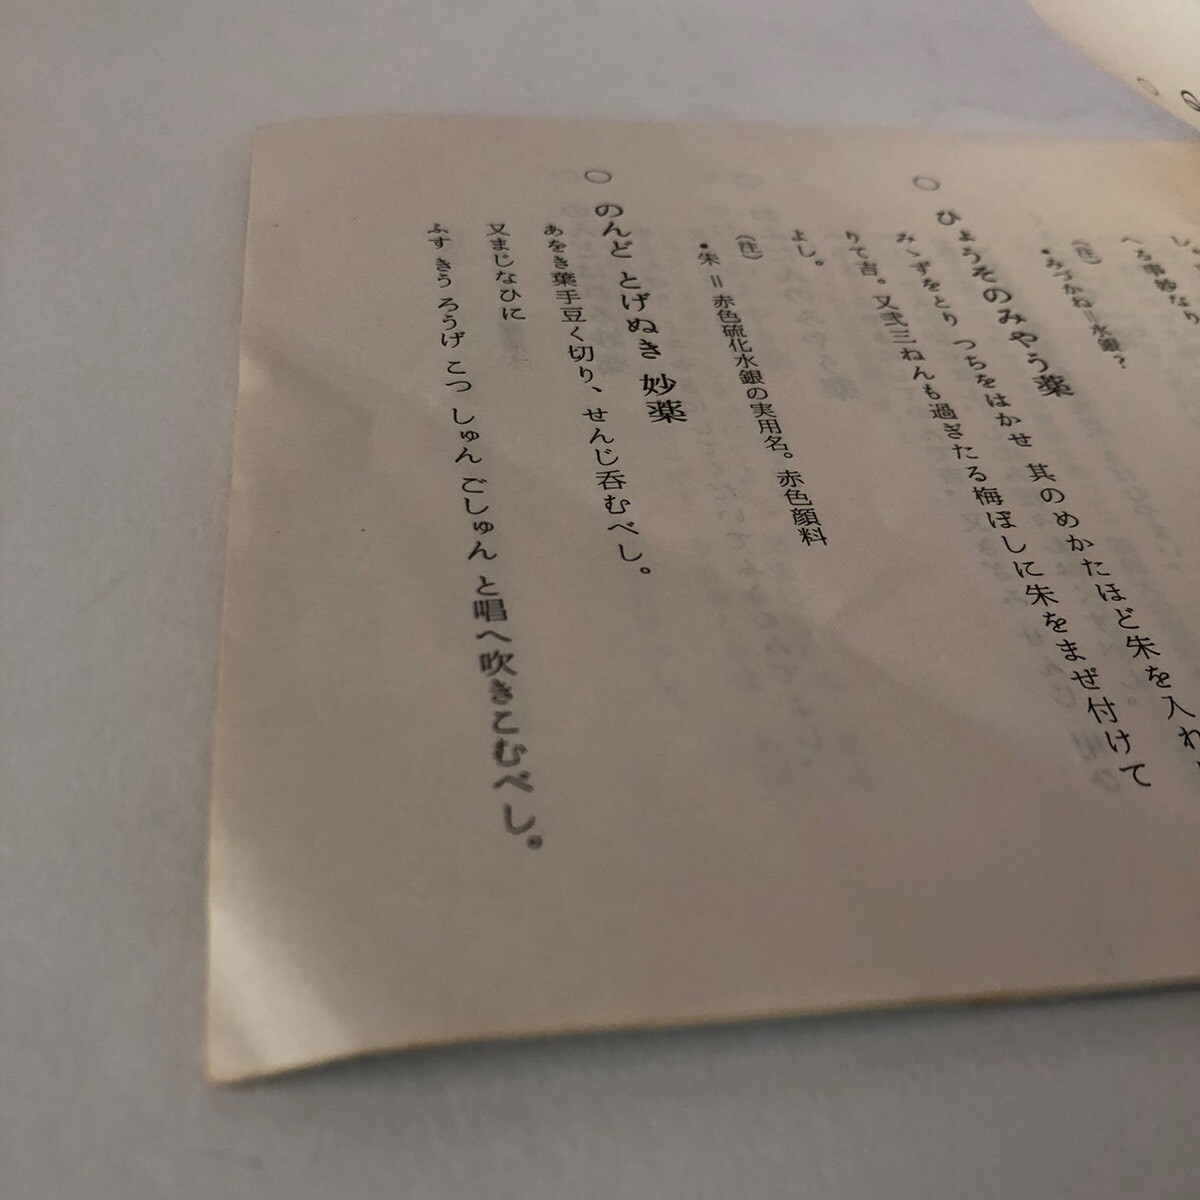 し
へる事妙なり
(注)
・みづかね＝水銀？
○ ひょうそのみやう薬
みゝずをとり つちをはかせ 其のめかたほど朱を入れ
りて吉。又弐三ねんも過ぎたる梅ぼしに朱をまぜ付けて
よし。
(注)
・朱＝赤色硫化水銀の実用名。赤色顔料
○ のんど とげぬき 妙薬
あをき葉手豆く切り、せんじ呑むべし。
又まじなひに
ふすきう ろうげ こつ しゅん ごしゅん と唱へ吹きこむべし。